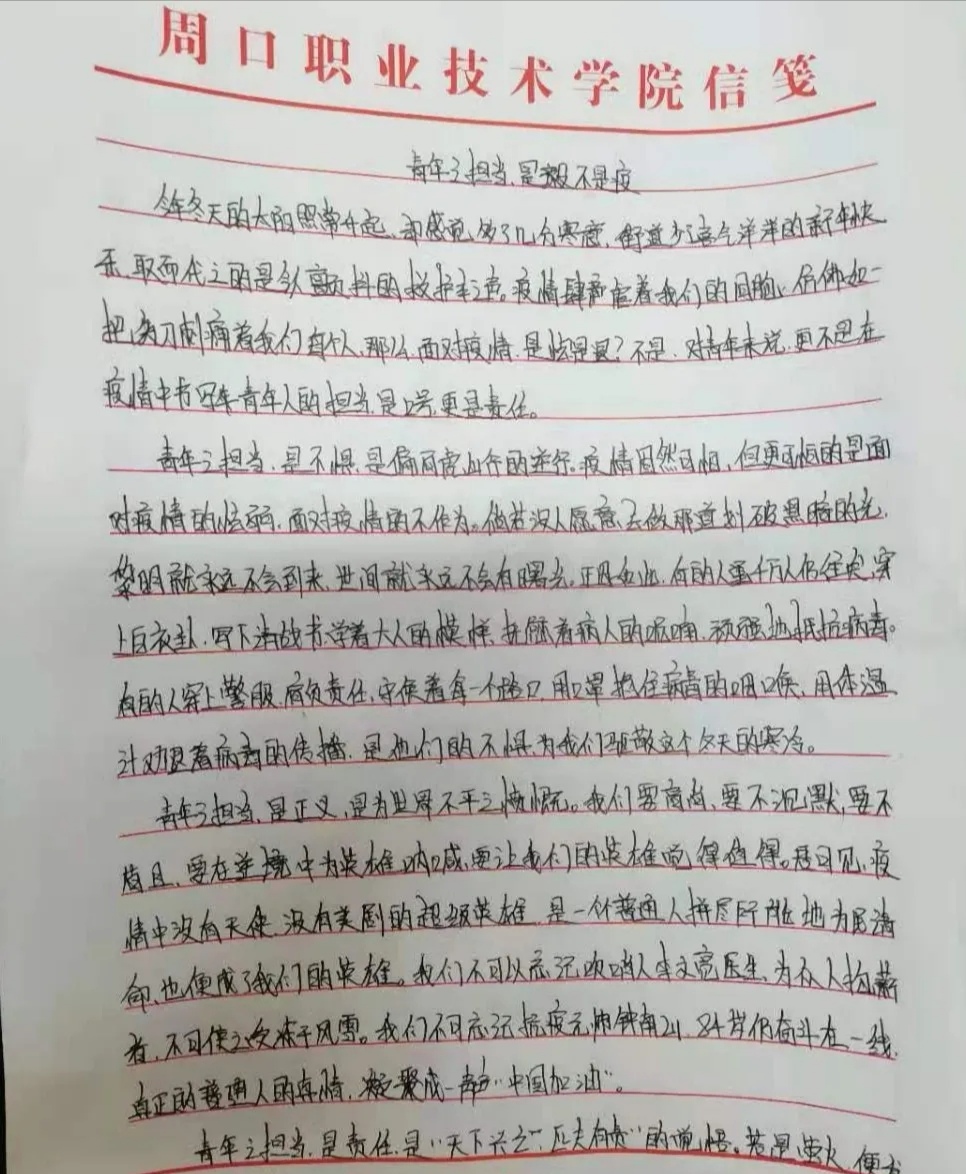 周口职业技术学院信笺
青年之担当,是毅不是疫
今年冬天的太阳照常升起,却感觉多了几分寒意,街道少了喜气洋洋的新年快
乐,取而代之的是令人颤抖的救护车声。疫情肆虐着我们的同胞,仿佛如一
把剪刀刺痛着我们每个人,那么,面对疫情,是怯是退?不是,对青年来说,更不是在
疫情中书写青年人的担当,是口号,更是责任。
青年之担当,是不惧,是偏向虎山行的逆行。疫情固然可怕,但更可怕的是面
对疫情的怯弱,面对疫情的不作为。倘若没人愿意去做那道划破黑暗的光,
黎明就永远不会到来,世间就永远不会有曙光。正因如此,有的人虽千万人仍往矣,穿
上白衣,写下请战书学着大人的模样,抚慰着病人的呢喃,顽强地抵抗病毒。
有的人穿上警服,肩负责任,守候着每一个路口,用口罩扼住病毒的咽喉,用体温
计劝退着病毒的传播,是他们的不惧为我们驱散这个冬天的寒冷。
青年之担当,是正义,是为世界不平之愤慨。我们要高尚,要不沉默,要不
苟且,要在逆境中为英雄呐喊,要让我们的英雄觉得值得。可见,疫
情中没有天使,没有美剧的超级英雄,是一个个普通人拼尽所能地为民请
命,也便成了我们的英雄。我们不可以忘记吹哨人李文亮医生,为众人抱薪
者,不可使之冻于风雪。我们不可忘记抗疫元帅钟南山,84岁仍奋斗在一线,
真正的普通人的真情,凝聚成一声声“中国加油”。
青年之担当,是责任,是“天下兴亡,匹夫有责”的觉悟。若是萤火,便